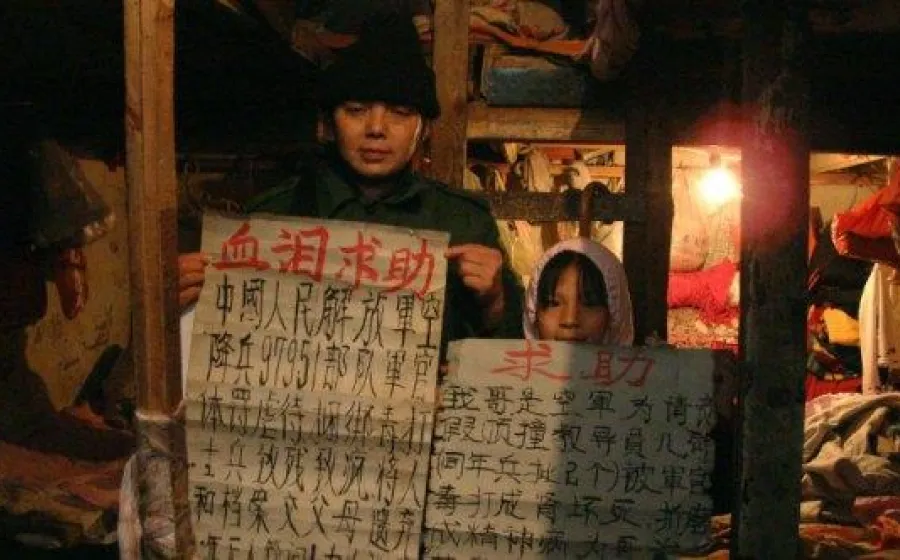 血泪求助
中國人民解放軍空
降兵97951部队軍官
体罚虐待捆绑毒打
士兵致残致疯将人
和档案交父母遗弃
求助
我哥是空軍为请
假顶撞教导員
同年兵 被軍官
毒打成肾坏死
成精神病为哥